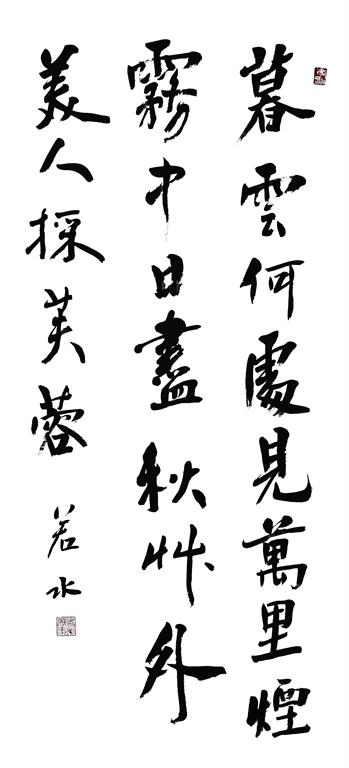 暮雲何處見萬里煙
霧中日盡秋艸外
美人採芙蓉
若水